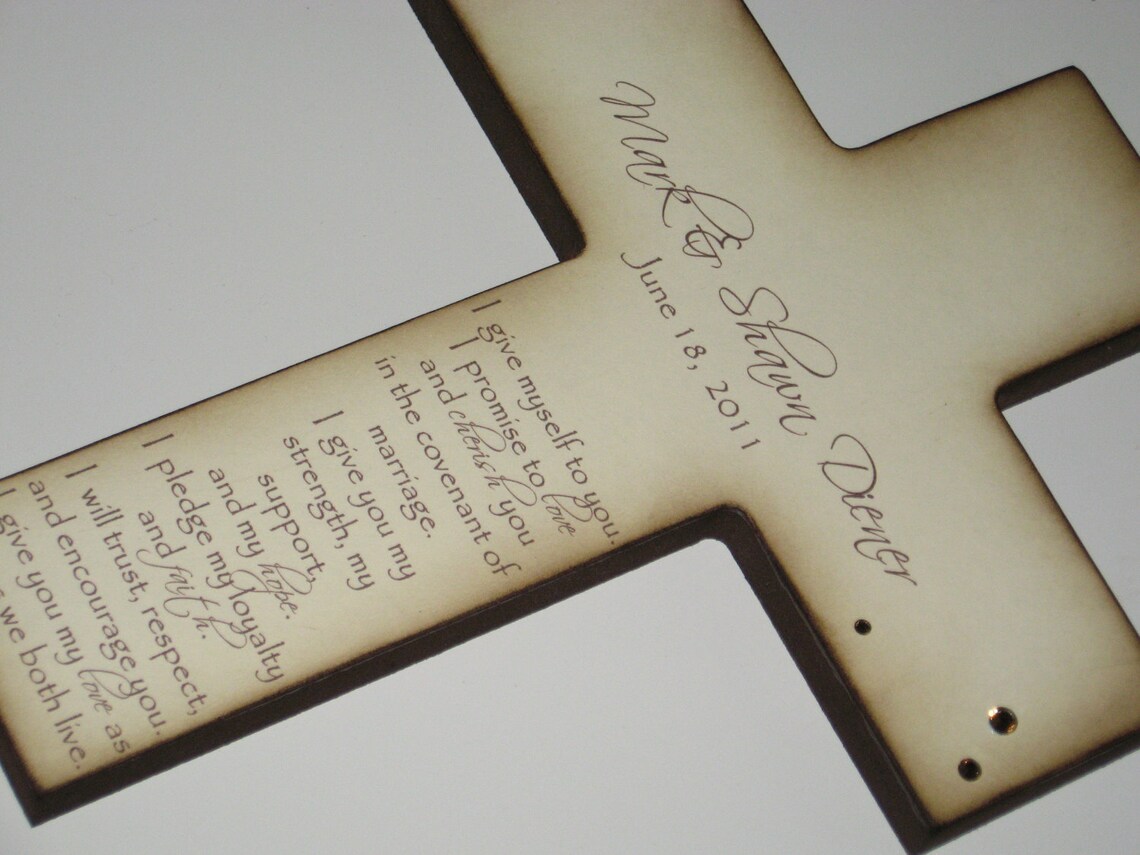 Mark & Shawn Diener
June 18, 2011
I give myself to you.
I promise to love
and cherish you
in the covenant of
marriage.
I give you my
strength, my
support,
and my hope.
I pledge my loyalty
and faith.
I will trust, respect,
and encourage you.
I give you my love as
we both live.